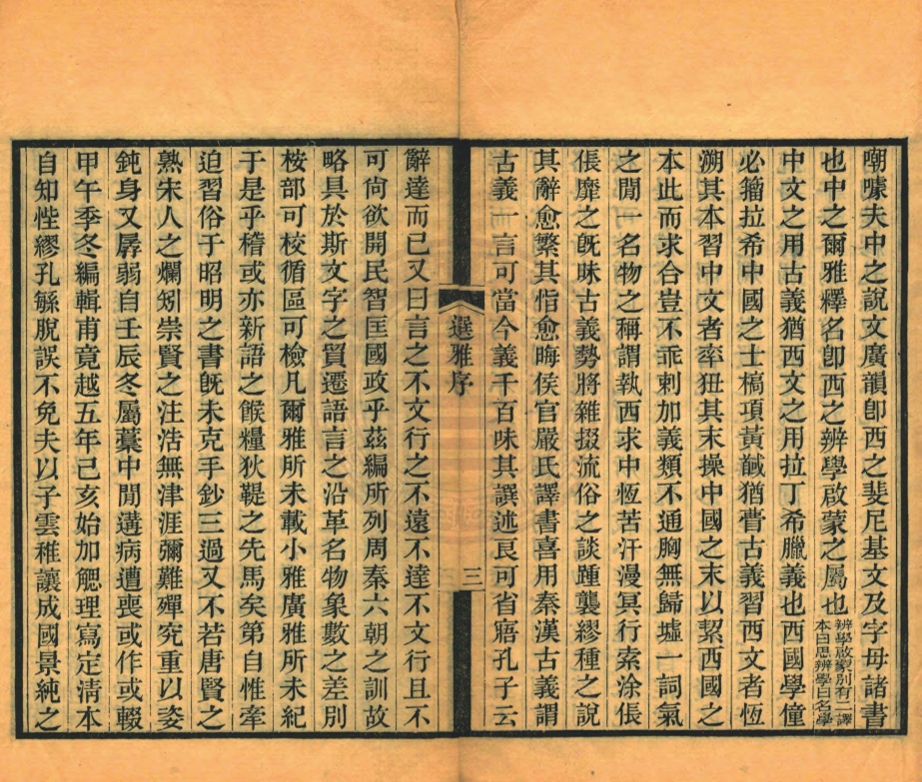 嘲噱夫中之說文廣韻卽西之斐尼基文及字母諸書
也中之爾雅釋名卽西之辨學啟蒙之屬也辨學啟蒙別有二譯本曰思辨學曰名學
中文之用古義猶西文之用拉丁希臘義也西國學僮
必籀拉希中國之士槁項黃馘猶瞢古義習西文者恆
溯其本習中文者率狃其末操中國之末以絜西國之
本此而求合豈不乖剌加義類不通胸無歸墟一詞氣
之閒一名物之稱謂執西求中恆苦汗漫冥行索涂倀
倀靡之旣昧古義勢將雜掇流俗之談踵襲繆種之說
其辭愈繁其恉愈晦侯官嚴氏譯書喜用秦漢古義謂
古義一言可當今義千百味其譔述良可省寤孔子云
選雅序
三
辭達而已又曰言之不文行之不遠不達不文行且不
可尙欲開民智匡國政乎茲編所列周秦六朝之訓故
略具於斯文字之貿遷語言之沿革名物象數之差別
桉部可校循區可檢凡爾雅所未載小雅廣雅所未紀
于是乎稽或亦新語之餱糧狄鞮之先馬矣第自惟牽
迫習俗于昭明之書旣未克手鈔三過又不若唐賢之
熟宋人之爛矧崇賢之注浩無津涯彌難殫究重以姿
鈍身又孱弱自壬辰冬屬藁中閒遘病遭喪或作或輟
甲午季冬編輯甫竟越五年己亥始加䚡理寫定淸本
自知悂繆孔緐脫誤不免夫以子雲稚讓成國景純之